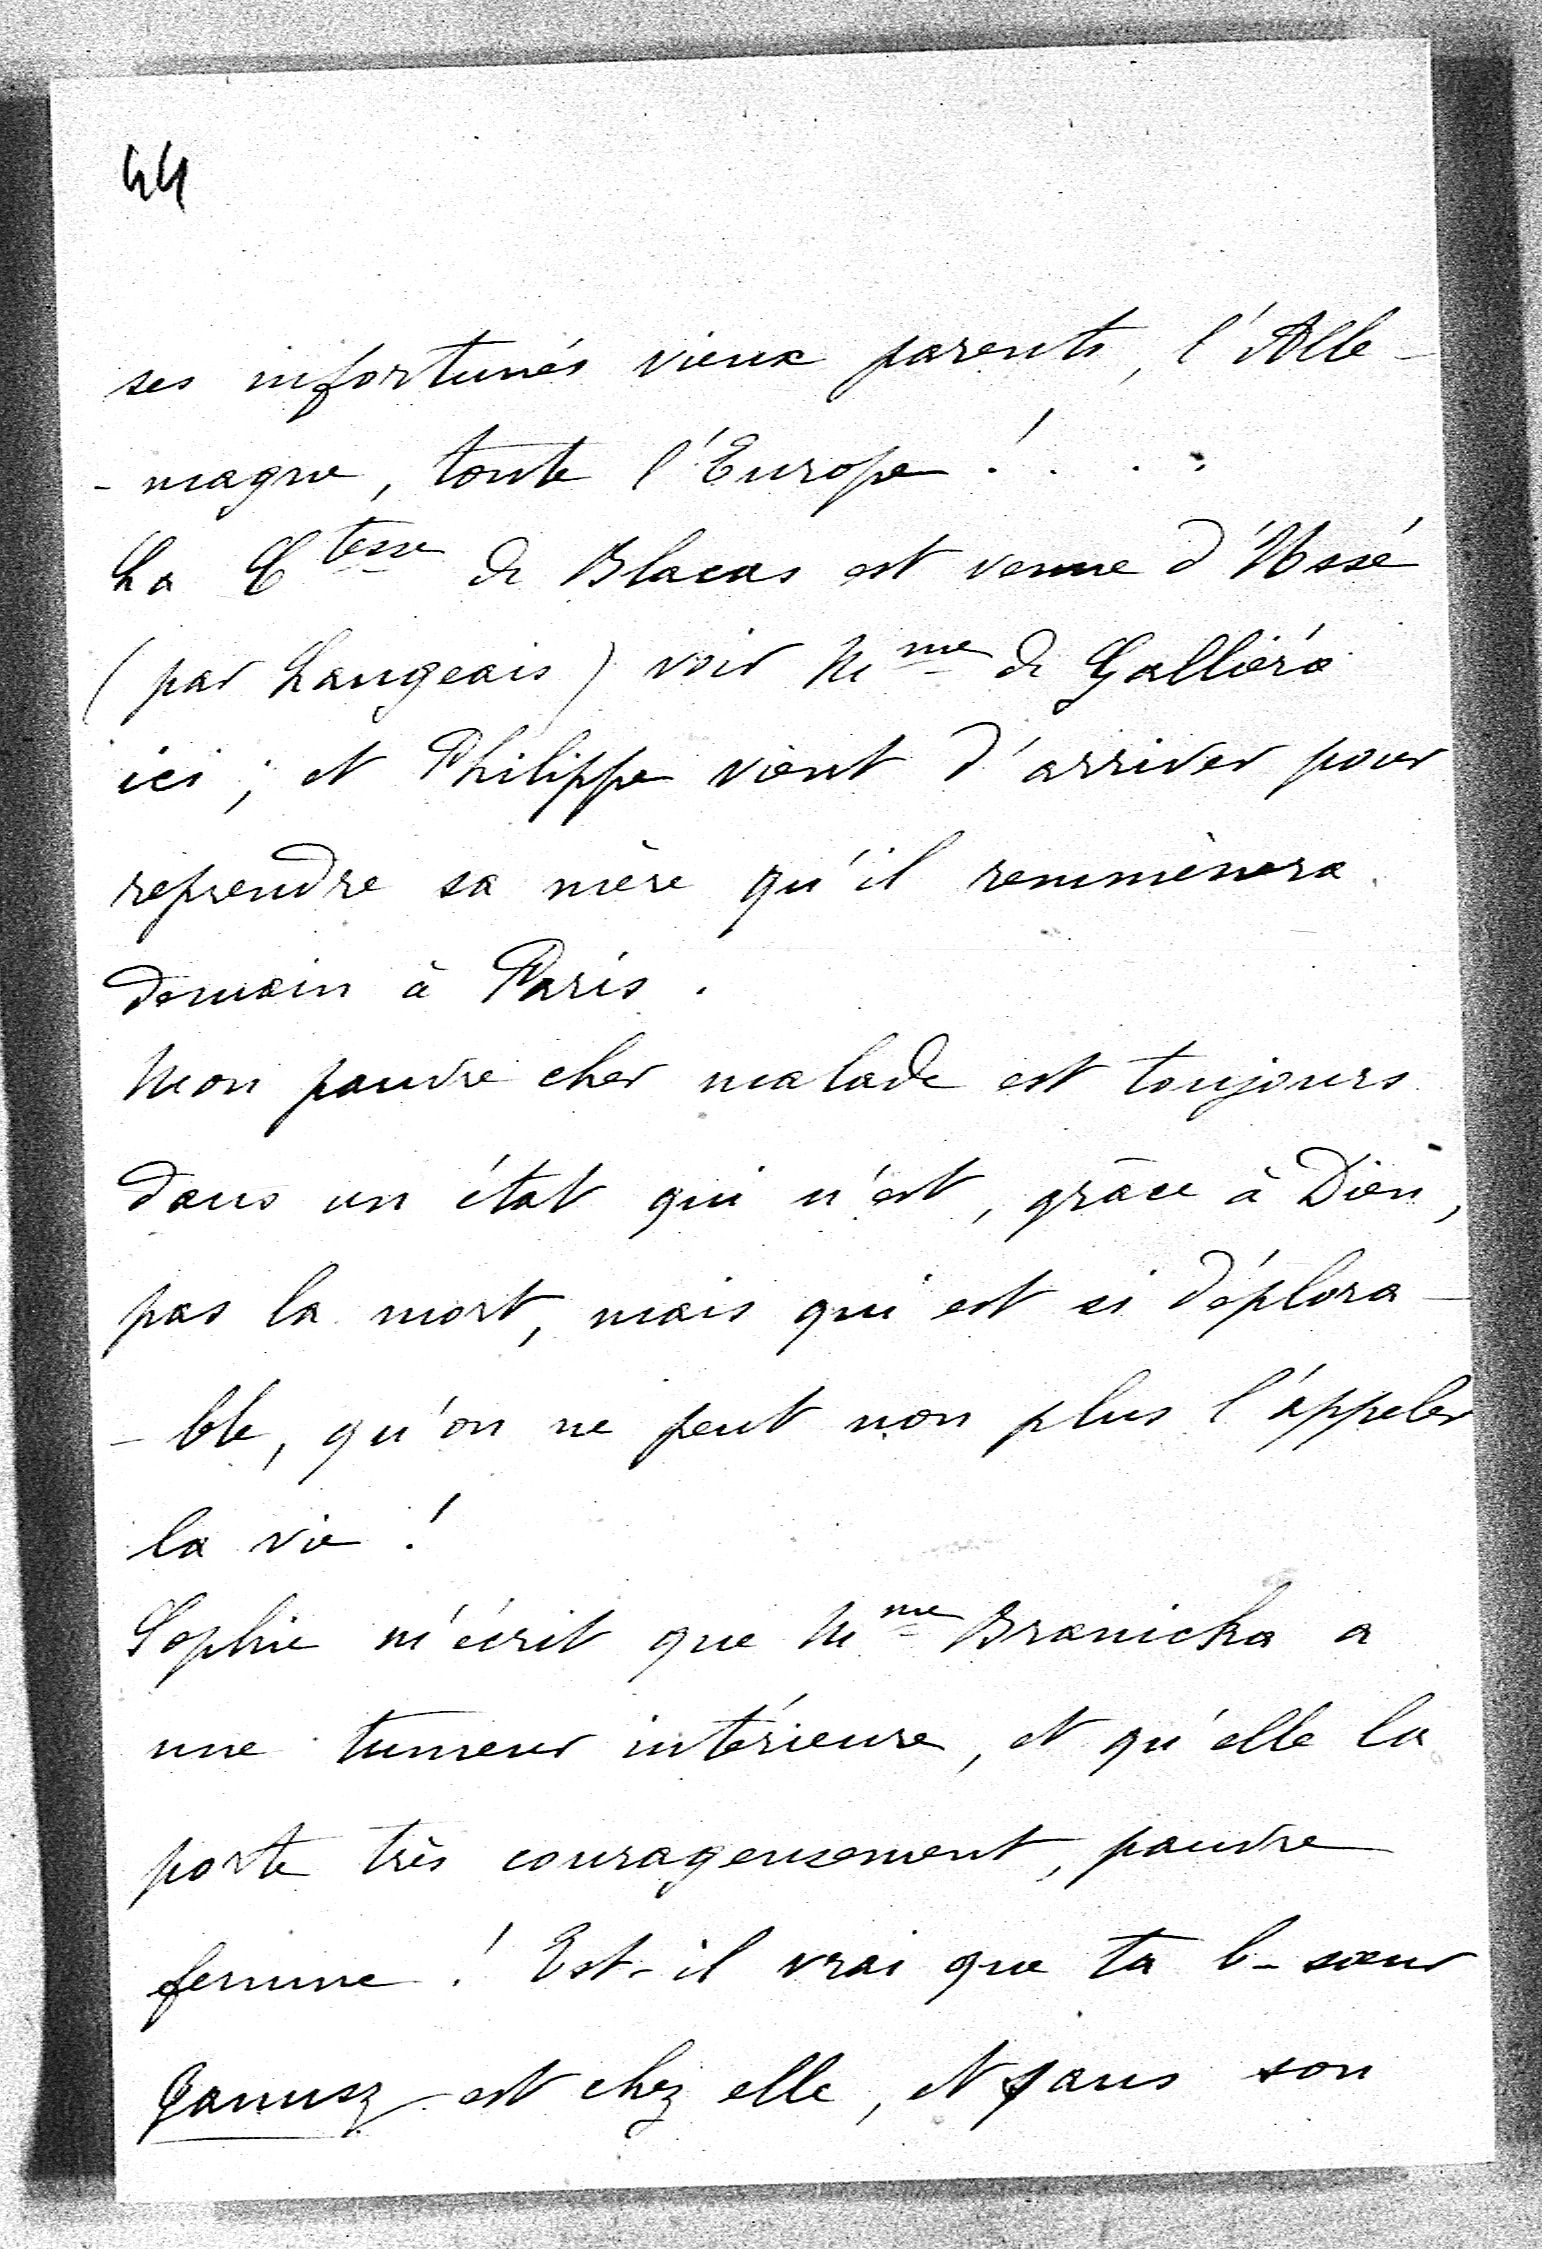 44
ses infortunés vieux parents, l'Alle-
-magne, toute l'Europe ! . . .
La Ctesse de Blacas est venue d'Ussé
(par Langeais) voir Mme de Galliéra
ici ; et Philippe vient d'arriver pour
reprendre sa mère qu'il remmènera
demain à Paris .
Mon pauvre cher malade est toujours
dans un état qui n'est, grâce à Dieu,
pas la mort, mais qui est si déplora-
-ble, qu'on ne peut non plus l'appeler
la vie !
Sophie m'écrit que Mme Branicka a
une tumeur intérieure, et qu'elle la
porte très courageusement, pauvre
femme ! Est-il vrai que ta b-sœur
Janusz est chez elle, et sans son